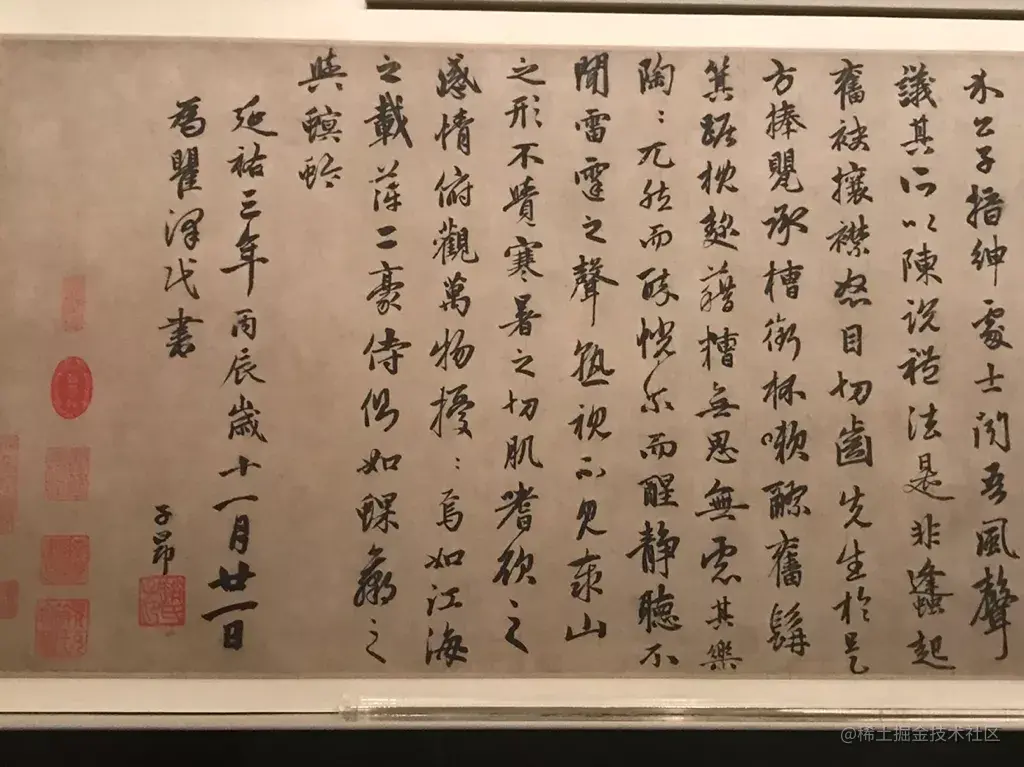 介公子搢紳處士聞吾風聲
議其所以陳說禮法是非蠭起
奮袂攘襟怒目切齒先生於是
方捧甖承槽銜杯漱醪奮髯
箕踞枕麴藉糟無思無慮其樂
陶:兀然而醉恍尔而醒静聽不
聞雷霆之聲孰視不見泰山
之形不覺寒暑之切肌嗜欲之
感情俯觀萬物擾:焉如江海
之載萍二豪侍側如蜾蠃之
與螟蛉
延祐三年丙辰歲十一月廿一日
為瞿澤書
子昂
@稀土掘金技术社区